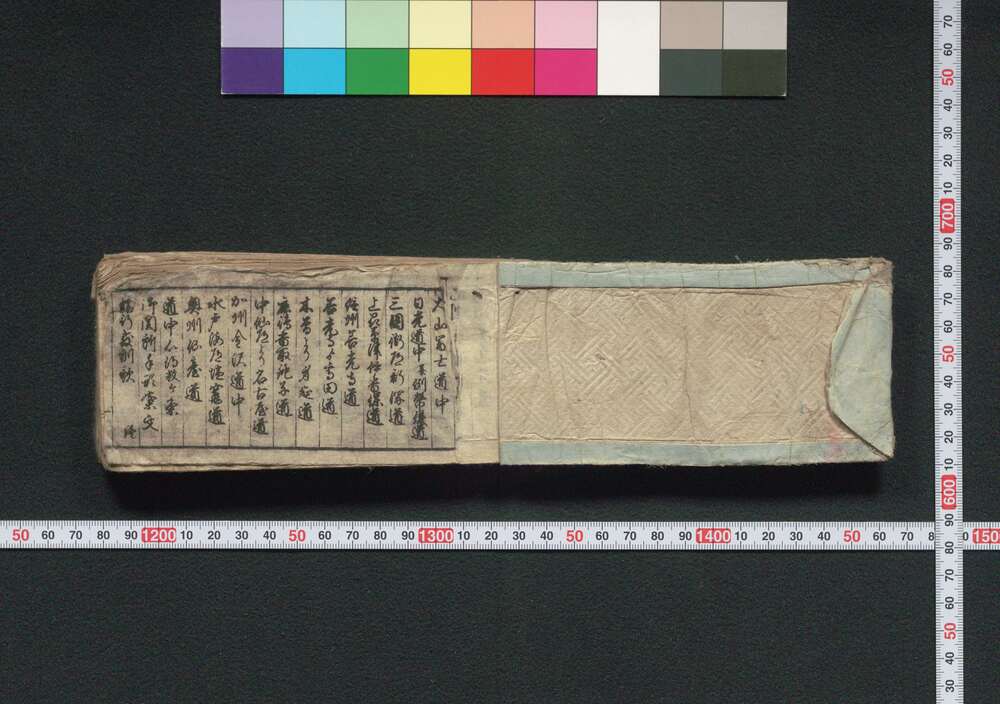 大山冨士道中
日光道中并例幣使道
三國街道新潟道
草津伊香保道
信州善光寺道
善光寺より高田道
木曽より身延道
鹿嶋香取銚子道
中仙道より名古屋道
加州金沢道中
水戸海道塩竃道
奥州仙臺道
道中心得数ヶ条
御関所手形案文
旅行教訓歌 終
50 60 70 80 90 1200 10 20 30 40 50 60 70 80 90 1300 10 20 30 40 50 60 70 80 90 1400 10 20 30 40 50 60 70
70 60 50 40 30 20 10 700 90 80 70 60 50 40 30 20 10 600 90 80 70 60 50 40 30